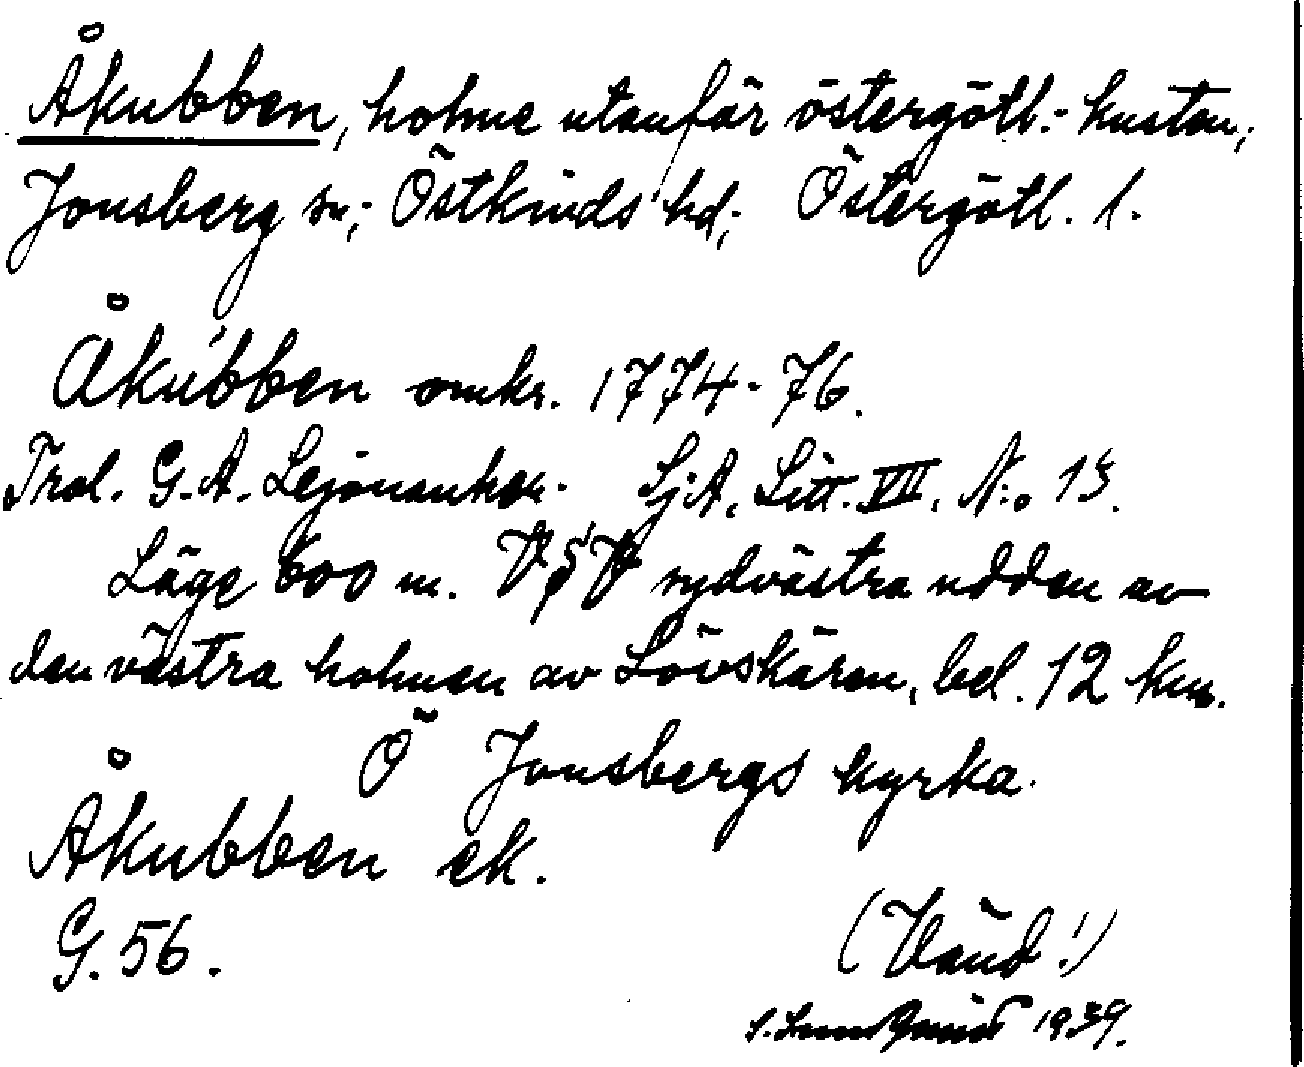 Åkubben, holme utanför östergötl.-kusten,
Jonsberg sn; Östkinds hd; Östergötl. l.
Åkubben omkr. 1774-76.
Trol. G.A. Lejonanker. SjA. Litt. VII. N:o 13.
Läge 600 m. VSV sydvästra udden av
den västra holmen av Lövskären, bel. 12 km.
Ö Jonsbergs kyrka.
Åkubben ek.
G. 56.
(Vänd!)
1939.